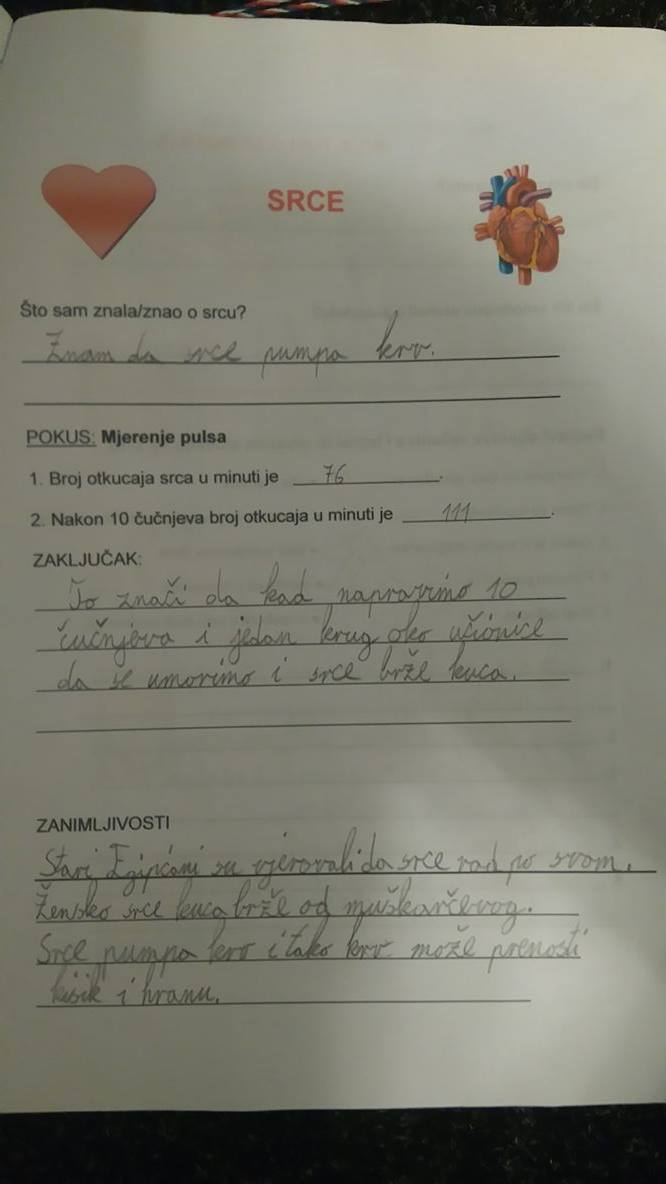 SRCE
Što sam znala/znao o srcu?
Znam da srce pumpa krv.
POKUS: Mjerenje pulsa
1. Broj otkucaja srca u minuti je 76.
2. Nakon 10 čučnjeva broj otkucaja u minuti je 111.
ZAKLJUČAK:
To znači da kad napravimo 10
čučnjeva i jedan krug oko učionice
da se umorimo i srce brže kuca.
ZANIMLJIVOSTI
Stari Egipćani su vjerovali da srce rad po svom.
Žensko srce kuca brže od muškarčevog.
Srce pumpa krv i tako krv može prenosti
kisik i hranu.